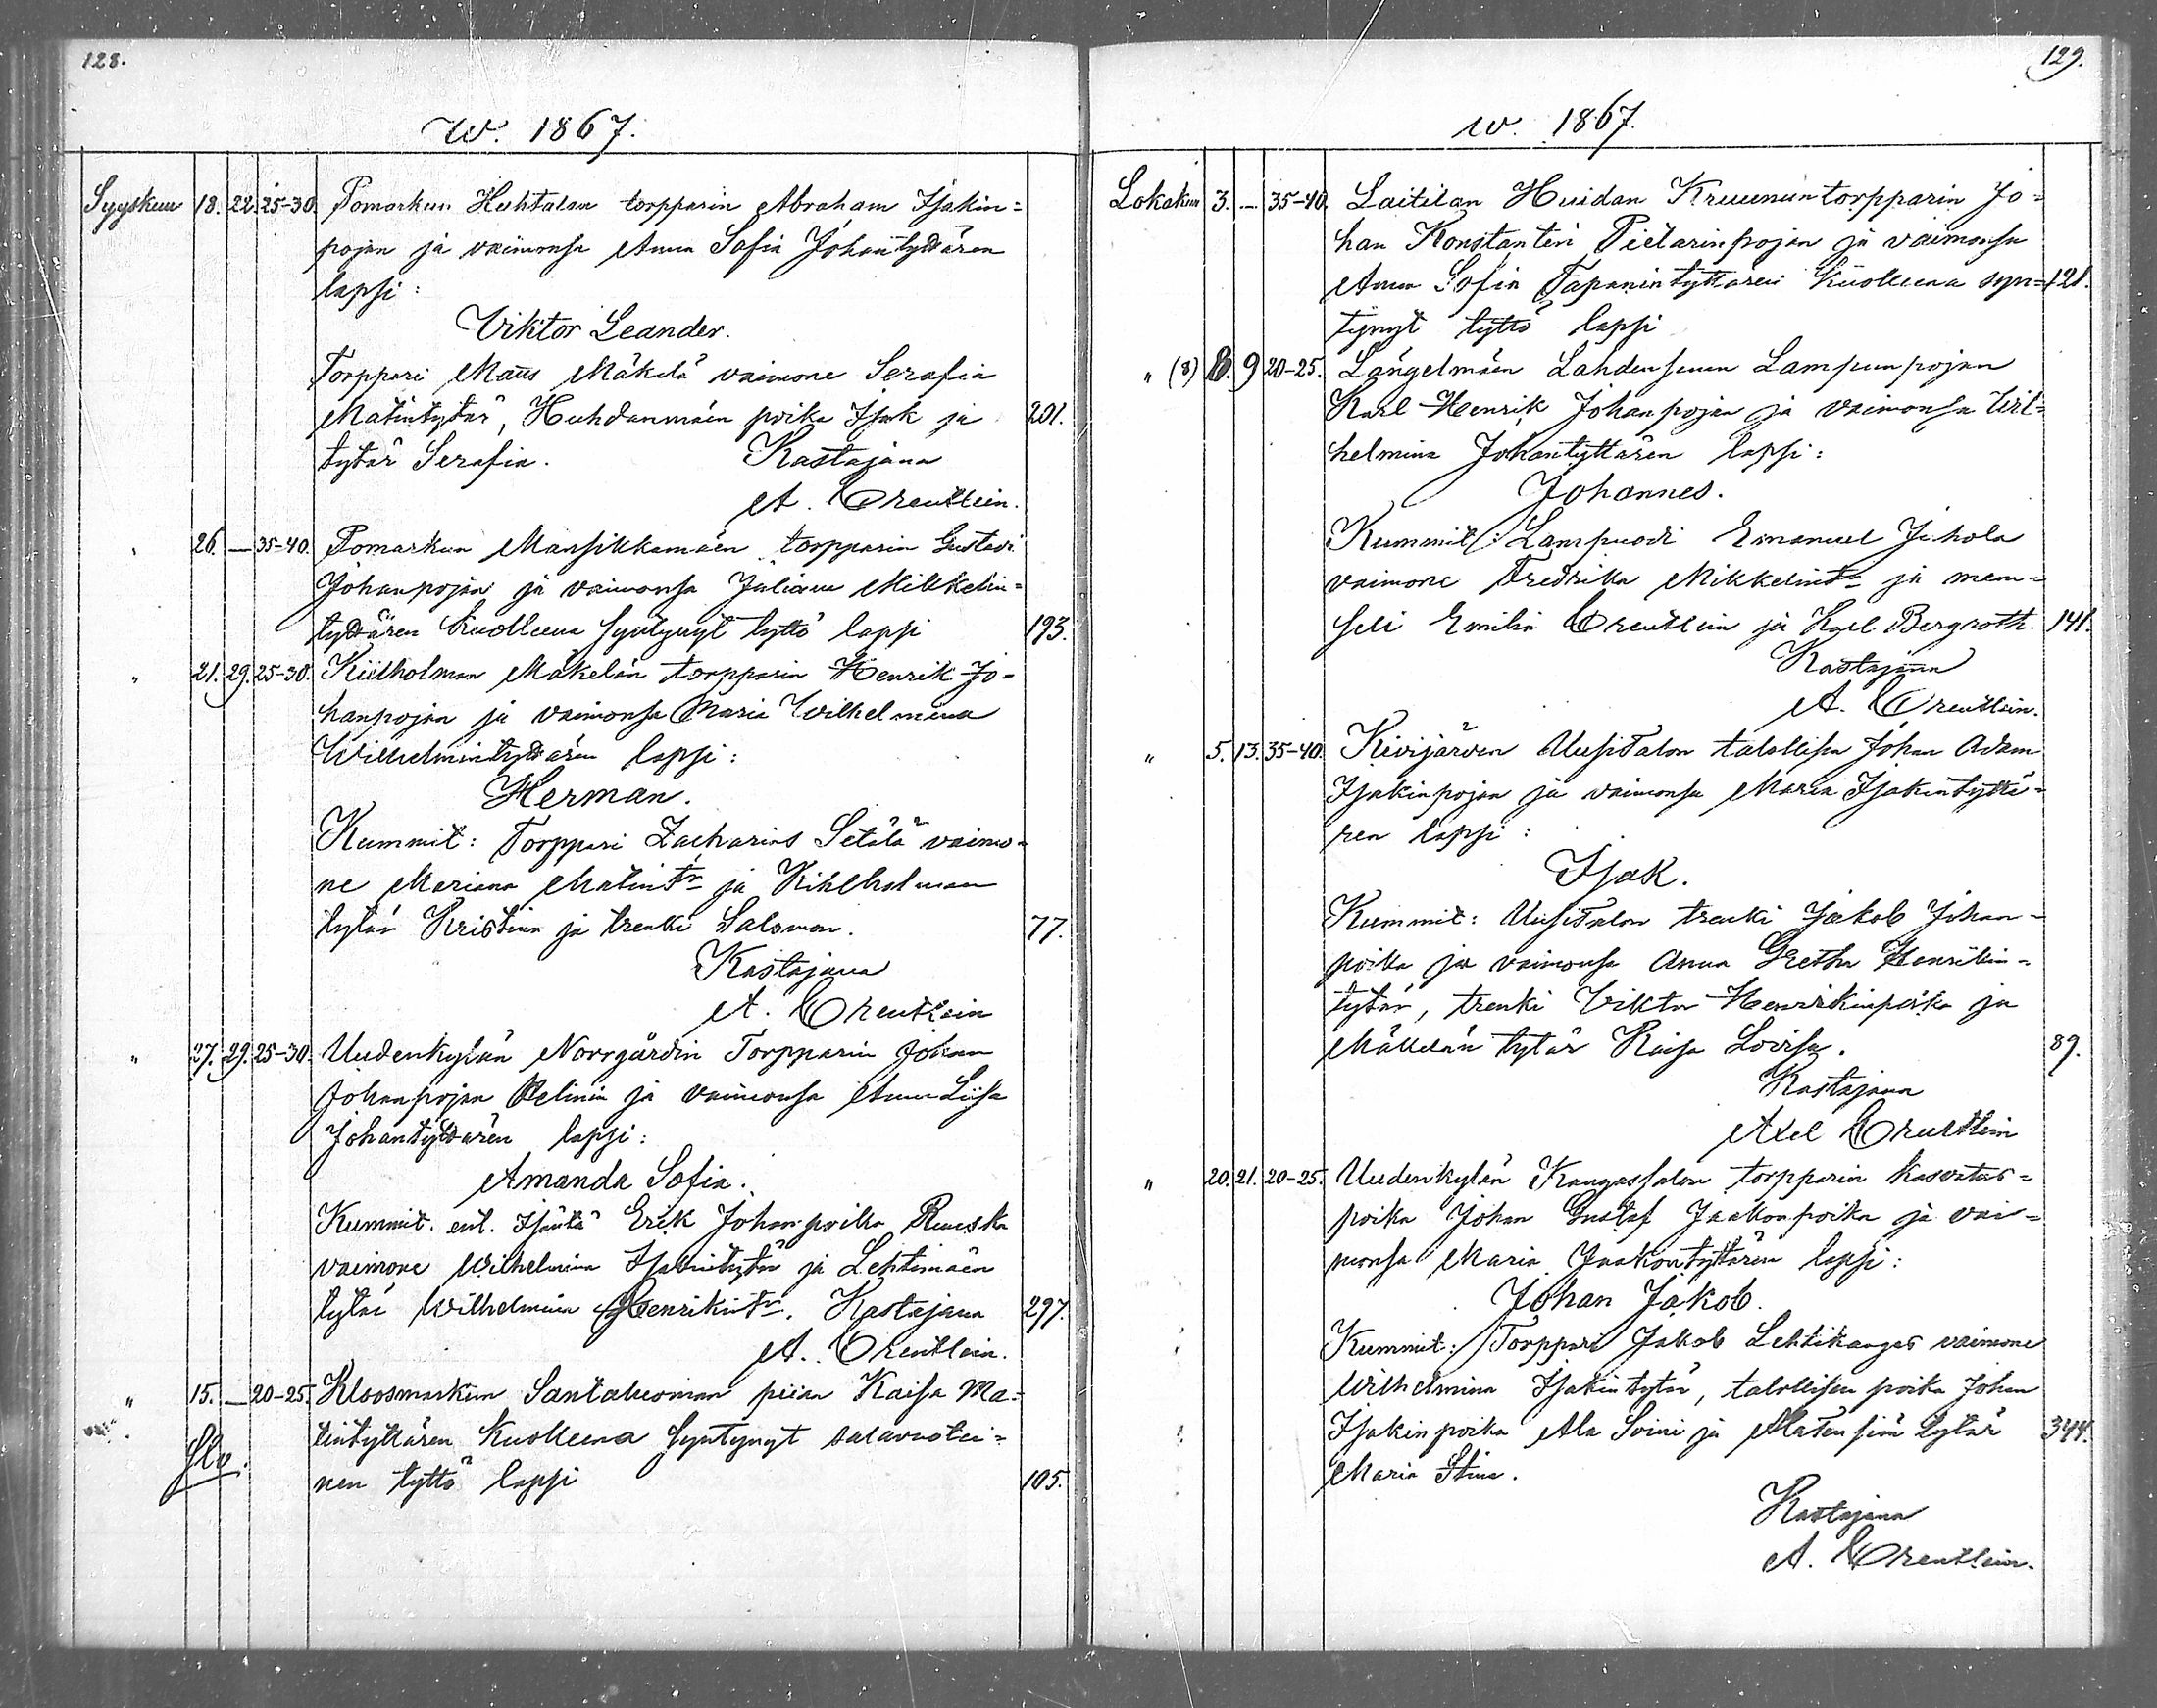 128.
w. 1867.
Syyskuu 18. 22. 25-30. Pomarkun Huhtalan torpparin Abraham Isakin=
pojan ja vaimonsa Anna Sofia Johantyttären
lapsi:
Viktor Leander.
Torppari Matts Mäkelä vaimone Serafia
Matintytär, Huhdanmäen poika Isak ja 201.
tytär Serafia. Kastajana
A. Creutlein.
" 26. — 35-40. Pomarkun Mansikkamäen torpparin Gustavi
Johanpojan ja vaimonsa Juliana Mikkelin=
tyttären kuolleena syntynyt tyttö lapsi 193.
" 21. 29. 25-30. Kiilholman Mäkelän torpparin Henrik Jo-
hanpojan ja vaimonsa Maria Wilhelmina
Wilhelmintyttären lapsi:
Herman.
Kummit: Torppari Zacharias Setälä vaimo-
ne Mariana Matint:r ja Kihlholman
tytär Kristina ja trenki Salomon. 77.
Kastajana
A. Creutlein
" 27. 29. 25-30. Uudenkylän Norrgårdin Torpparin Johan
Johanpojan Velinin ja vaimonsa Anna Liisa
Johantyttären lapsi:
Amanda Sofia.
Kummit. ent. Isäntä Erik Johanpoika Ruuska
vaimone Wilhelmina Isakintytär ja Lehtimäen
tytär Wilhelmiina Henrikint:r. Kastajana 297.
A. Creutlein.
" 15. — 20-25. Kloosmarkun Santaluoman piian Kaisa Ma=
tintyttären kuolleena syntynyt salavuotei=
nen tyttö lapsi 105.
129.
w. 1867.
Lokakuu 3. — 35-40. Laitilan Huidan Kruununtorpparin Jo=
han Konstantin Pietarinpojan ja vaimonsa
Anna Sofia Tapanintyttären kuolleena syn= 121.
tynyt tyttö lapsi
" (8) 8. 9 20-25. Längelmäen Lahdensuun Lampunpojan
Karl Henrik Johanpojan ja vaimonsa Wil=
helmina Johantyttären lapsi:
Johannes.
Kummit: Lampuodi Emanuel Juhola
vaimone Fredrika Mikkelint:r ja mam=
seli Emilia Creutlein ja Karl Bergroth. 141.
Kastajana
A. Creutlein.
" 5. 13. 35-40. Kivijärven Uusitalon talollisen Johan Adam
Isakinpojan ja vaimonsa Maria Isakintyttä=
ren lapsi:
Isak.
Kummit: Uusitalon trenki Jakob Johan=
poika ja vaimonsa Anna Gretha Henrikin=
tytär, trenki Viktor Henrikinpoika ja
Mäkelän tytär Kaisa Lovisa. 89.
Kastajana
Axel Creutlein
" 20. 21. 20-25. Uudenkylän Kangassalon torpparin kasvatus=
poika Johan Gustaf Jaakonpoika ja vai=
monsa Maria Jaakontyttären lapsi:
Johan Jakob.
Kummit: Torppari Jakob Lehtikangas vaimone
Wilhelmina Isakintytär, talollisen poika Johan
Isakinpoika Ala Soini ja tytär 344.
Maria Stina.
Kastajana
A. Creutlein.